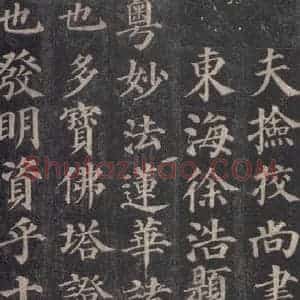 夫撿挍尚書
東海徐浩題
粵妙法蓮華諸
也多寶佛塔證
也發明資乎十
Shufaziliao.COM